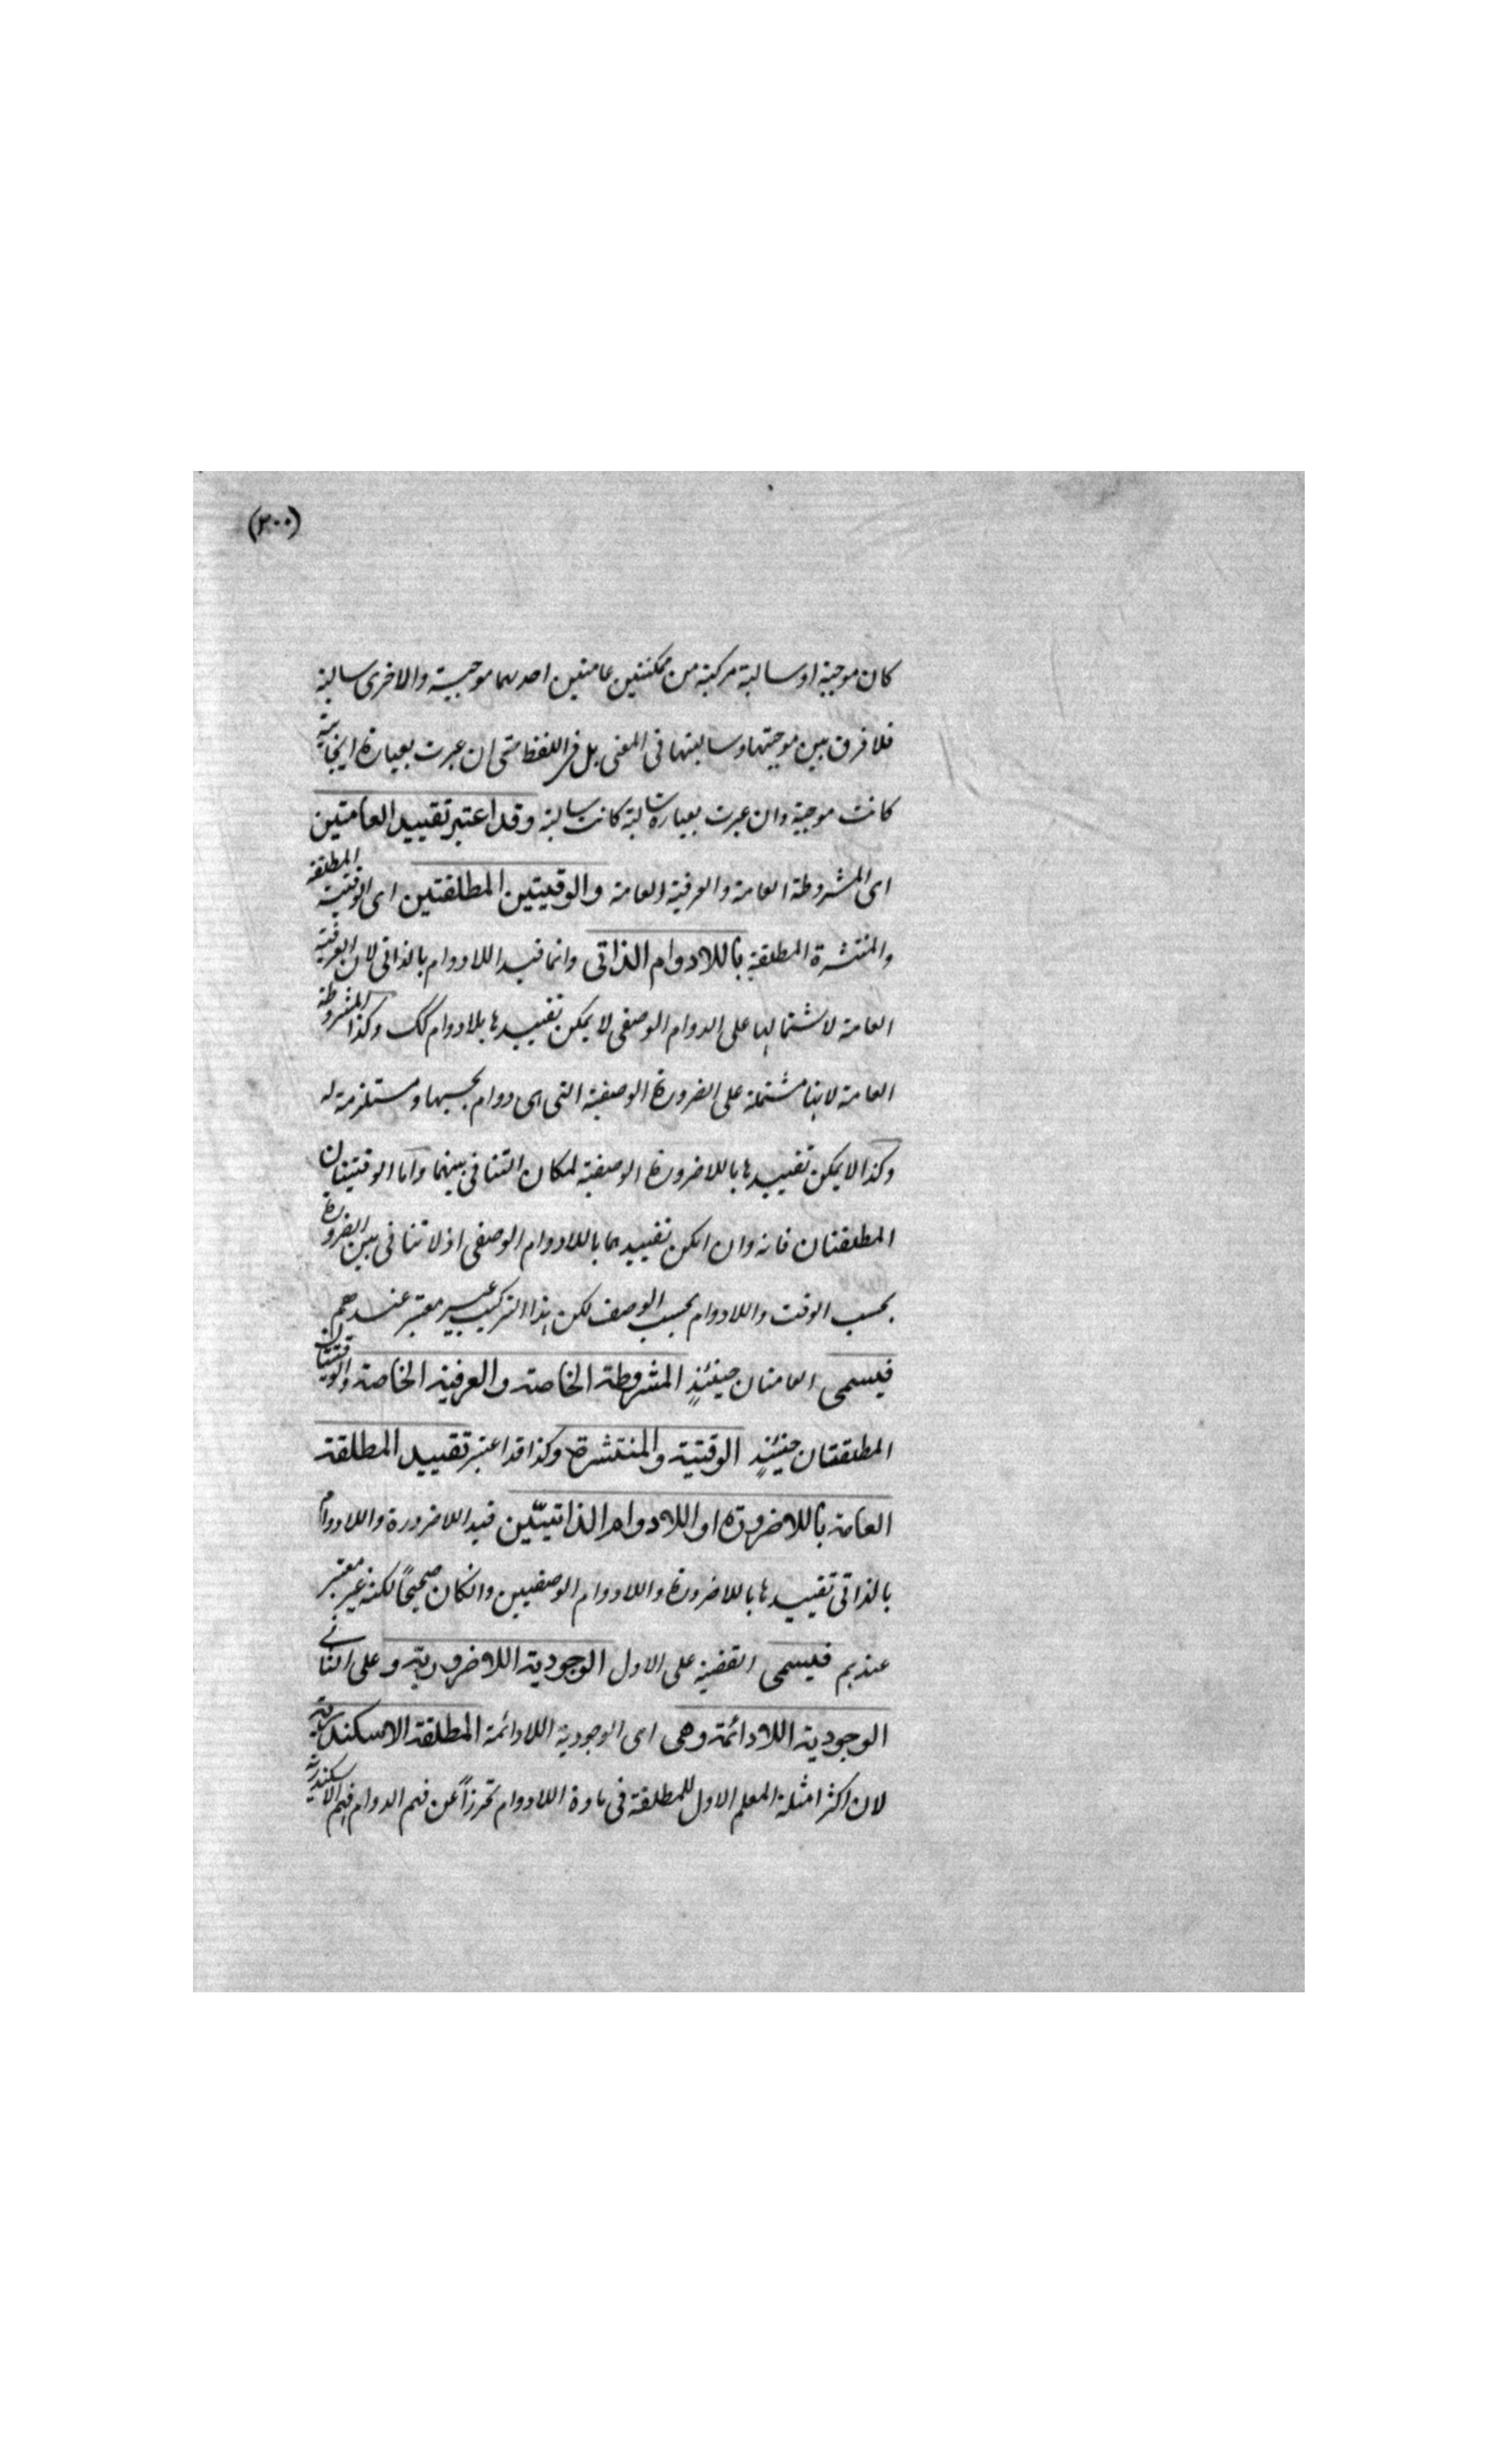 (٣٠٠)
كان موجبة او سالبة مركبة من ممكنتين عامتين احدىهما موجبية والاخرى سالبة
فلا فرق بين موجبتها وسالبتها فى المعنى بل فى اللفظ حتى ان عبرت بعبارة ايجابية
كانت موجبة وان عبرت بعبارة سالبة كانت سالبة وقد اعتبر تقييد العامتين
اى المشروطة العامة والعرفية العامة والوقتيتين المطلقتين اى الوقتية المطلقة
والمنتشرة المطلقة باللادوام الذاتى وانما قيد اللادوام بالذاتى لان العرفية
العامة لاشتمالها على الدوام الوصفى لا يمكن تقييدها بلادوام كك وكذا المشروطة
العامة لانها مشتملة على الضرورة الوصفية التى هى دوام بحسبها ومستلزمة له
وكذا لا يمكن تقييدها باللاضرورة الوصفية لمكان التنافى بينهما واما الوقتيتان
المطلقتان فانه وان امكن تقييدهما باللادوام الوصفى اذ لا تنافى بين الضرورة
بحسب الوقت واللادوام بحسب الوصف لكن هذا التركيب غير معتبر عندهم
فيسمى العامتان حينئذٍ المشروطة الخاصة والعرفية الخاصة والوقتيتان
المطلقتان حينئذٍ الوقتية والمنتشرة وكذا قد اعتبر تقييد المطلقة
العامة باللاضرورة او اللادوام الذاتيّين قيد اللاضرورة واللادوام
بالذاتى تقييدها باللاضرورة واللادوام الوصفيين وانكان صحيحًا لكنه غير معتبر
عندهم فيسمى القضية على الاول الوجودية اللاضروريّة وعلى الثانے
الوجودية اللادائمة وهى اى الوجودية اللادائمة المطلقة الاسكندرية
لان اكثر امثلة المعلم الاول للمطلقة فى مادة اللادوام تحرزاً عن فهم الدوام فهم الاسكندرية